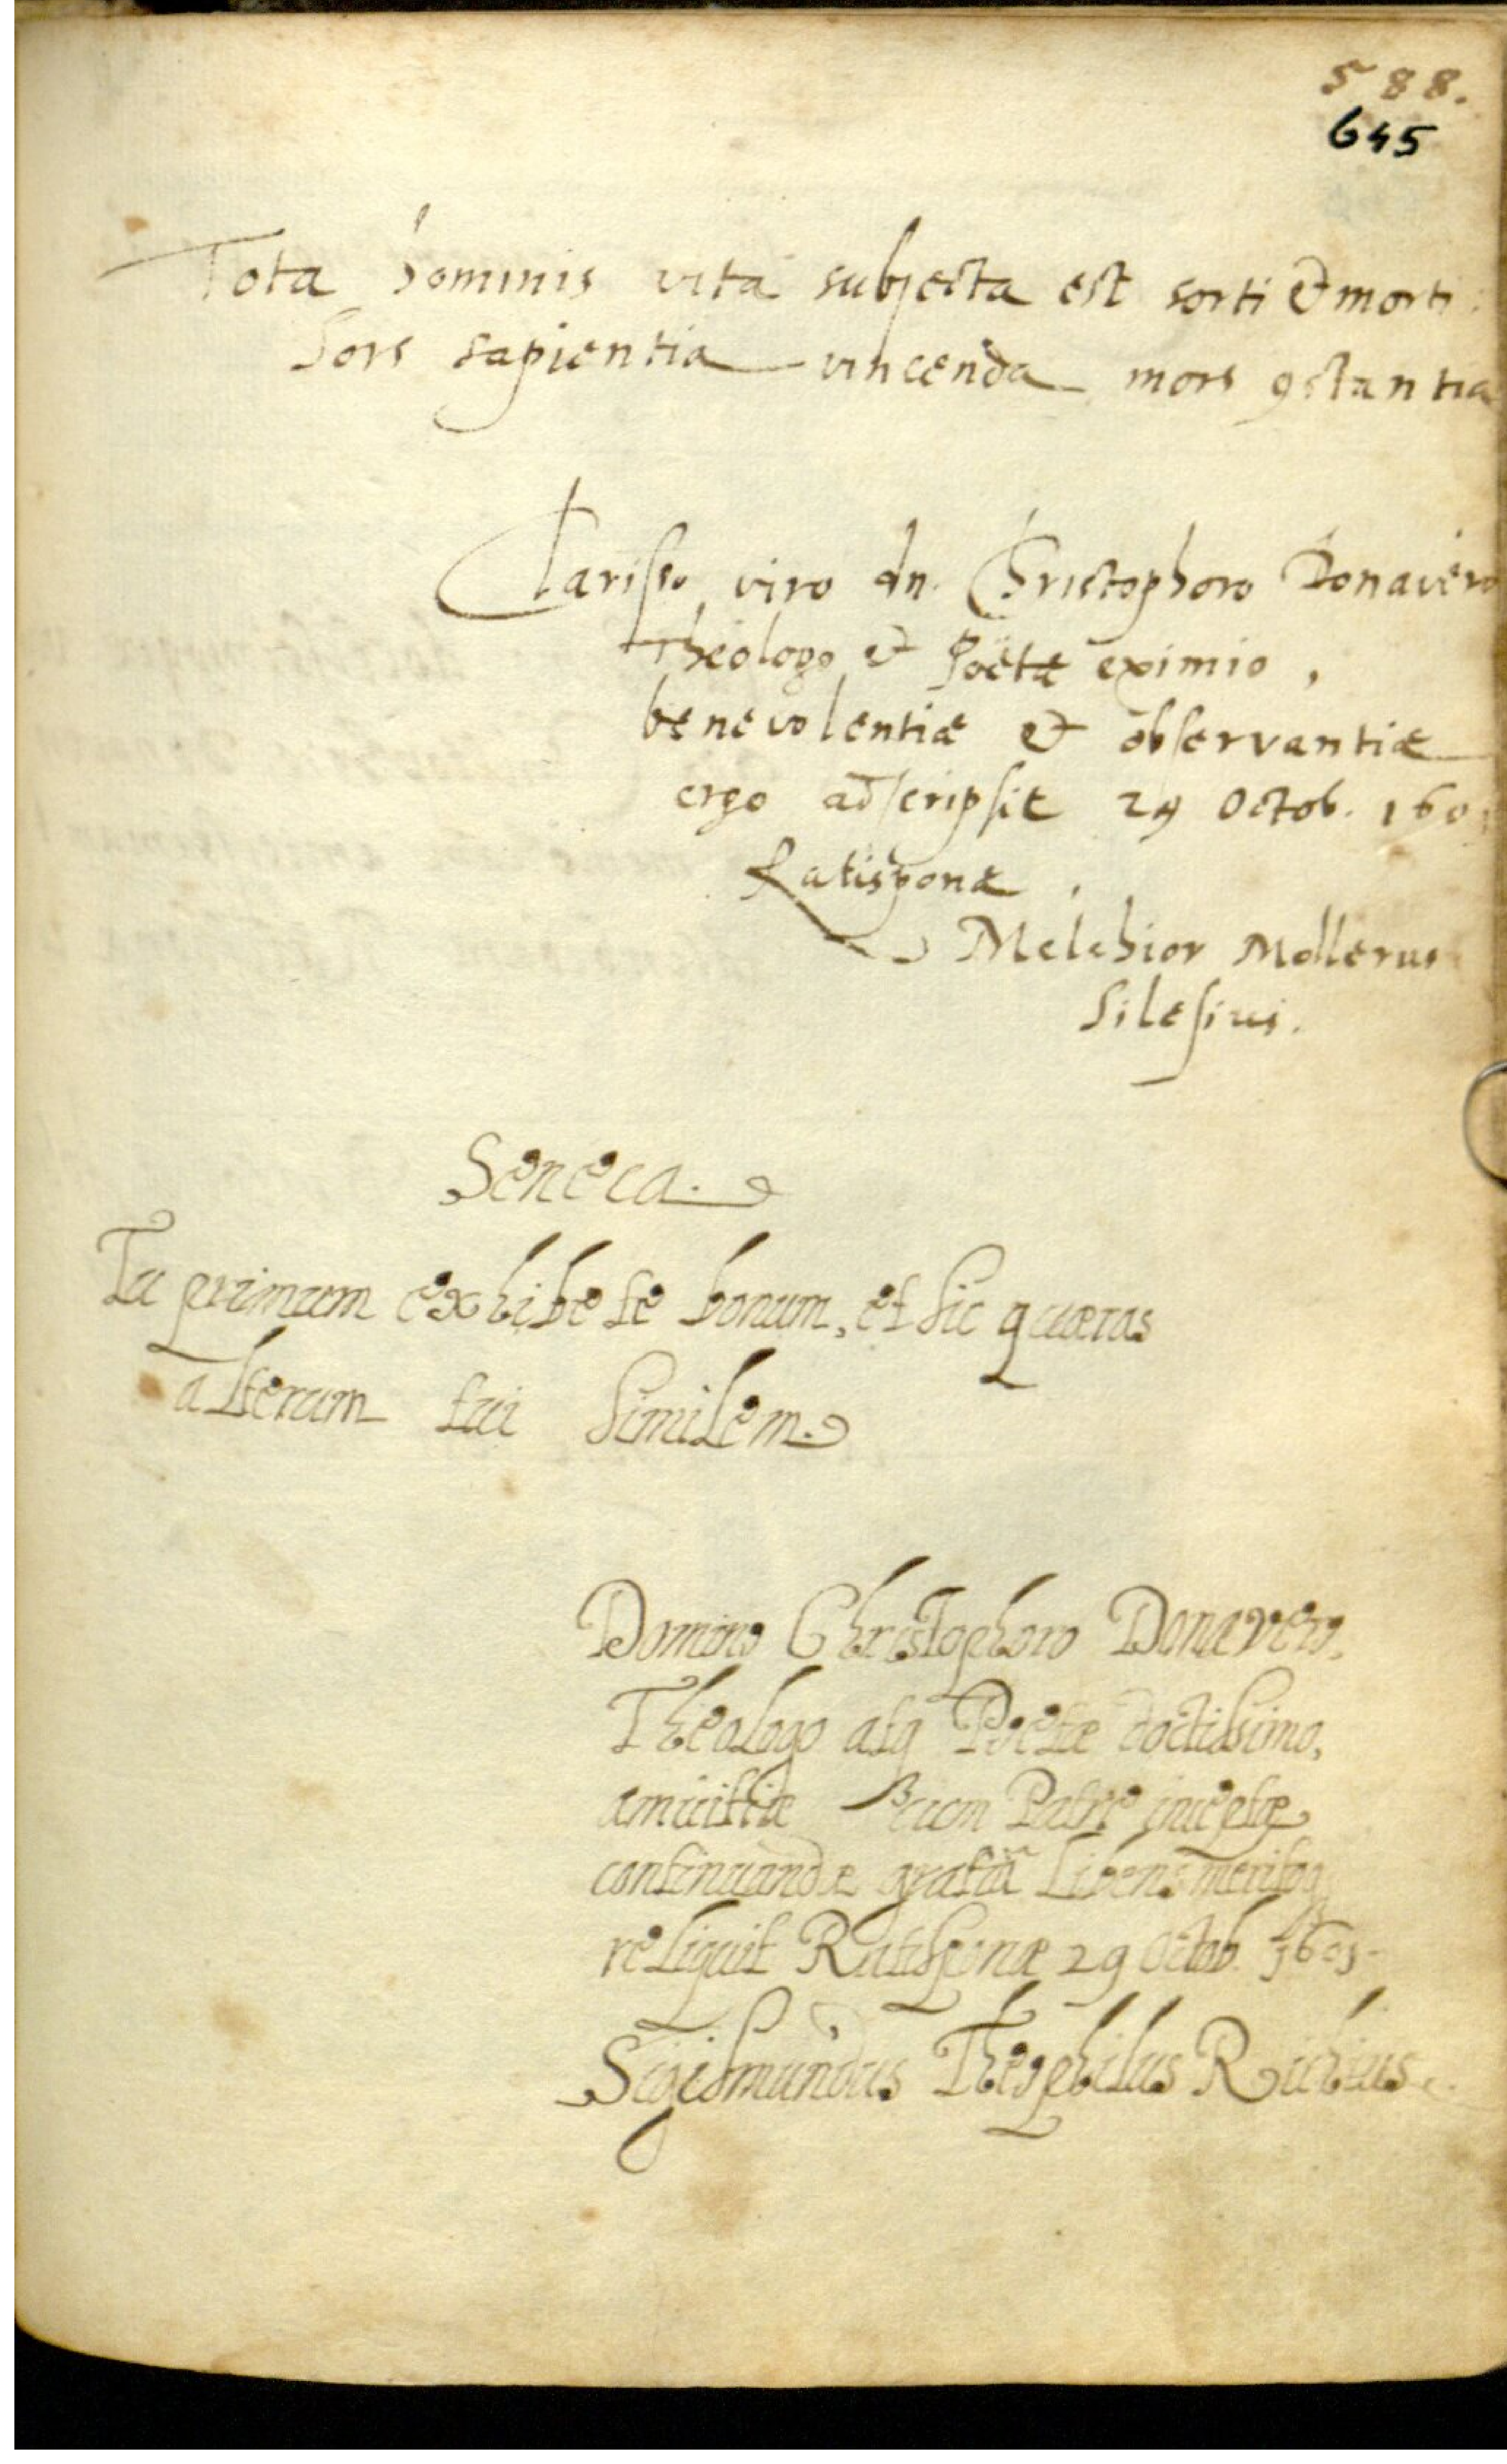 588.
645
Tota hominis vita subjecta est sorti & morti:
Sors sapientia vincenda mors ꝯstantia
Clarisso viro dn. Christophoro Donavero
Theologo & Poëtæ eximio,
benevolentiæ & observantiæ
ergo adscripsit 29 Octob. 1601
Ratisponæ.
Melchior Mollerus
Silesius.
Seneca.
Tu primum exhibe te bonum, et sic quæras
alterum tui similem.
Domino Christophoro Donavero,
Theologo atq Poetæ doctissimo,
amicitiæ cum Patre inceptæ
continuandæ gratiâ libens meritoq
reliquit Ratisponæ 29 Octob. 1601.
Sigismundus Theophilus Richius